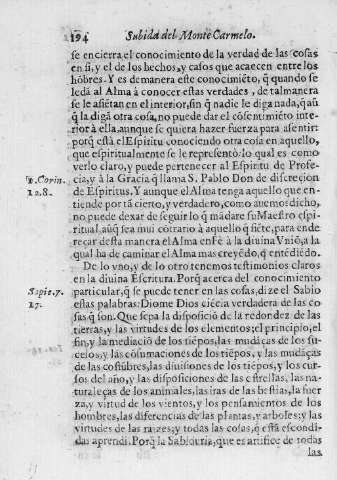 194 Subida del Monte Carmelo.
se encierra el conocimiento de la verdad de las cosas
en si, y el de los hechos, y casos que acaecen entre los
hõbres. Y es de manera este conocimiẽto, q̃ quando se
le dâ al Alma â conocer estas verdades, de tal manera
se le asiẽtan en el interior, sin q̃ nadie le diga nada, q̃ aũ
q̃ la digã otra cosa, no puede dar el cõsentimiẽto inte-
rior â ella. aunque se quiera hazer fuerza para asentir:
porq̃ està el Espiritu conociendo otra cosa en aquello,
que espiritualmente se le representò: lo qual es como
verlo claro, y puede pertenecer al Espiritu de Profe-
2. Corin. cia, y à la Gracia q̃ llama S. Pablo Don de discrecion
12. 8. de Espiritus. Y aunque el Alma tenga aquello que en-
tiende por tã cierto, y verdadero, como auemos dicho,
no puede dexar de seguir lo q̃ mãdare su Maestro espi-
ritual, aũq̃ sea mui cõtrario à aquello q̃ siẽte, para ende
reçar desta manera el Alma en Fè à la diuina Vniõ, a la
qual ha de caminar el Alma mas creyẽdo, q̃ entẽdiẽdo.
De lo vno, y de lo otro tenemos testimonios claros
en la diuina Escritura. Porq̃ acerca del conocimiento
Sapie. 7. particular, q̃ se puede tener en las cosas, dize el Sabio
17. estas palabras: Diome Dios ciẽcia verdadera de las co
sas q̃ son. Que sepa la disposiciõ de la redondez de las
tierras, y las virtudes de los elementos; el principio, el
fin, y la mediaciõ de los tiẽpos, las mudãças de los su-
cesos, y las cõsumaciones de los tiẽpos, y las mudãças
de las costũbres, las diuisiones de los tiẽpos, y los cur-
sos del año, y las disposiciones de las estrellas, las na-
turaleças de los animales, las iras de las bestias, la fuer
za, y virtud de los vientos, y los pensamientos de los
hombres, las diferencias de las plantas, y arboles: y las
virtudes de las raizes; y todas las cosas, q̃ està escondi-
das aprendi. Porq̃ la Sabiduria, que es artifice de todas
las